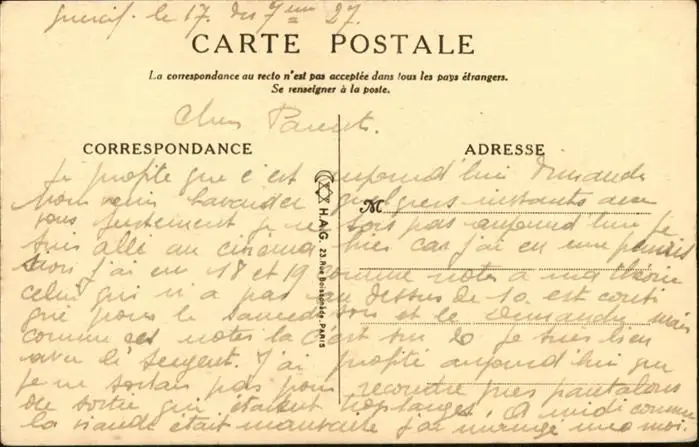 guercif. le 17. du 7 27.
CARTE POSTALE
La correspondance au recto n'est pas acceptée dans tous les pays étrangers.
Se renseigner à la poste.
Chers Parents.
CORRESPONDANCE
ADRESSE
Je profite que c'est aujourd'hui Dimanche
pour venir bavarder quelques instants avec
vous justement je ne sors pas aujourd'hui je
suis allé au cinéma hier car j'ai eu une permis
sion j'ai eu 18 et 19 comme notes à ma
celui qui n'a pas au dessus de 10 est consi
gné pour le samedi soir et le Dimanche mais
comme ces notes là c'est sur 20 je suis bien
avec le sergent. J'ai profité aujourd'hui que
je ne sortais pas pour recoudre mes pantalons
de sortie qui étaient A midi comme
la viande était mauvaise j'ai mangé une moi-
M
H.A.G. 23, Rue Boissonade, PARIS